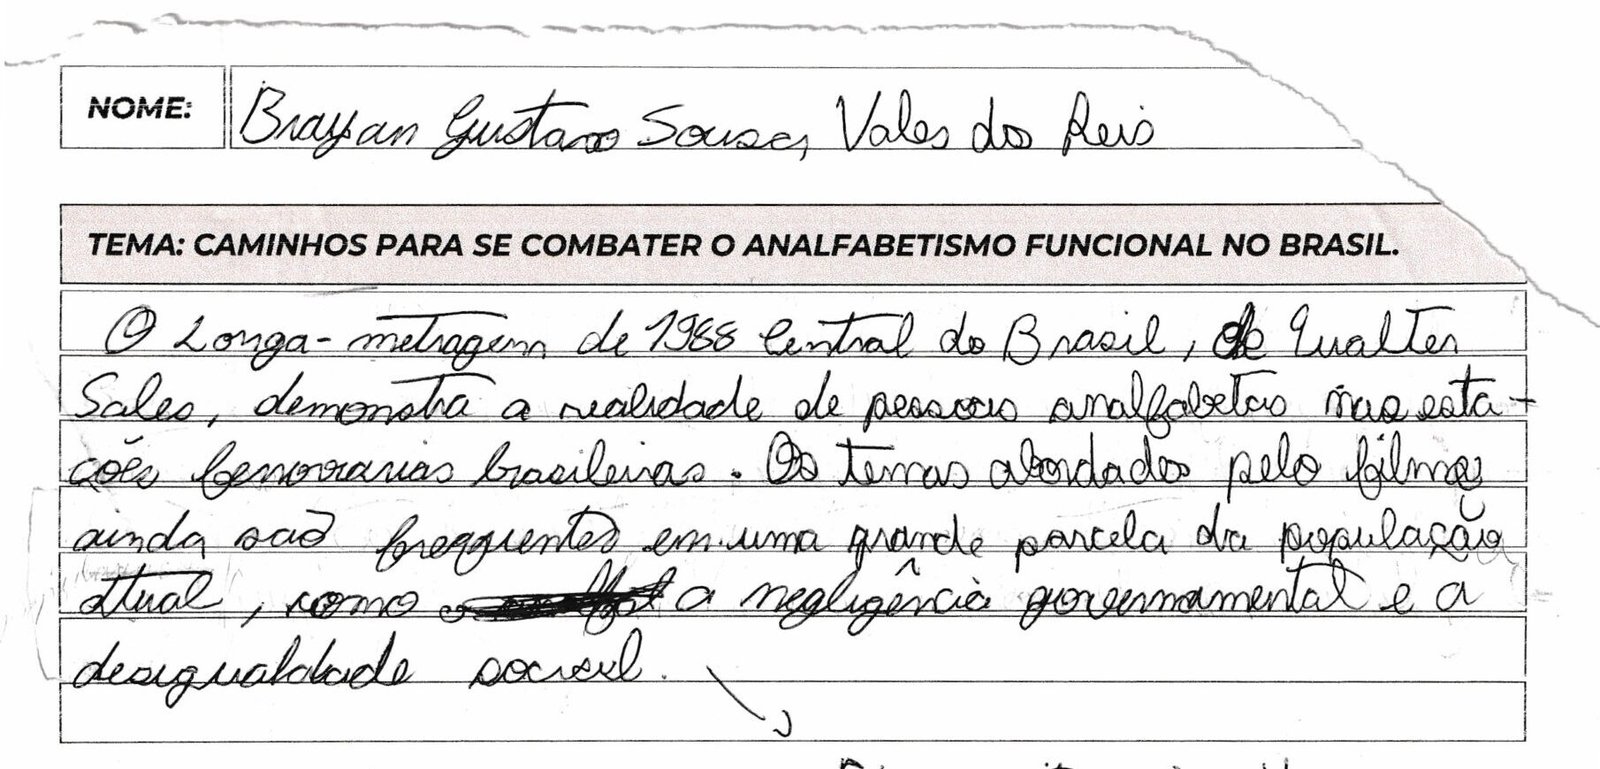 NOME: Brayan Gustavo Sousa, Vales do Reis
TEMA: CAMINHOS PARA SE COMBATER O ANALFABETISMO FUNCIONAL NO BRASIL.
O Longa-metragem de 1988 Central do Brasil, de Walter
Sales, demonstra a realidade de pessoas analfabetas nas esta-
ções ferrorarias brasileiras. Os temas abordados pelo filme
ainda saõ freqquentes em uma grande parcela da população
atual, como a negligência governamental e a
desigualdade social.